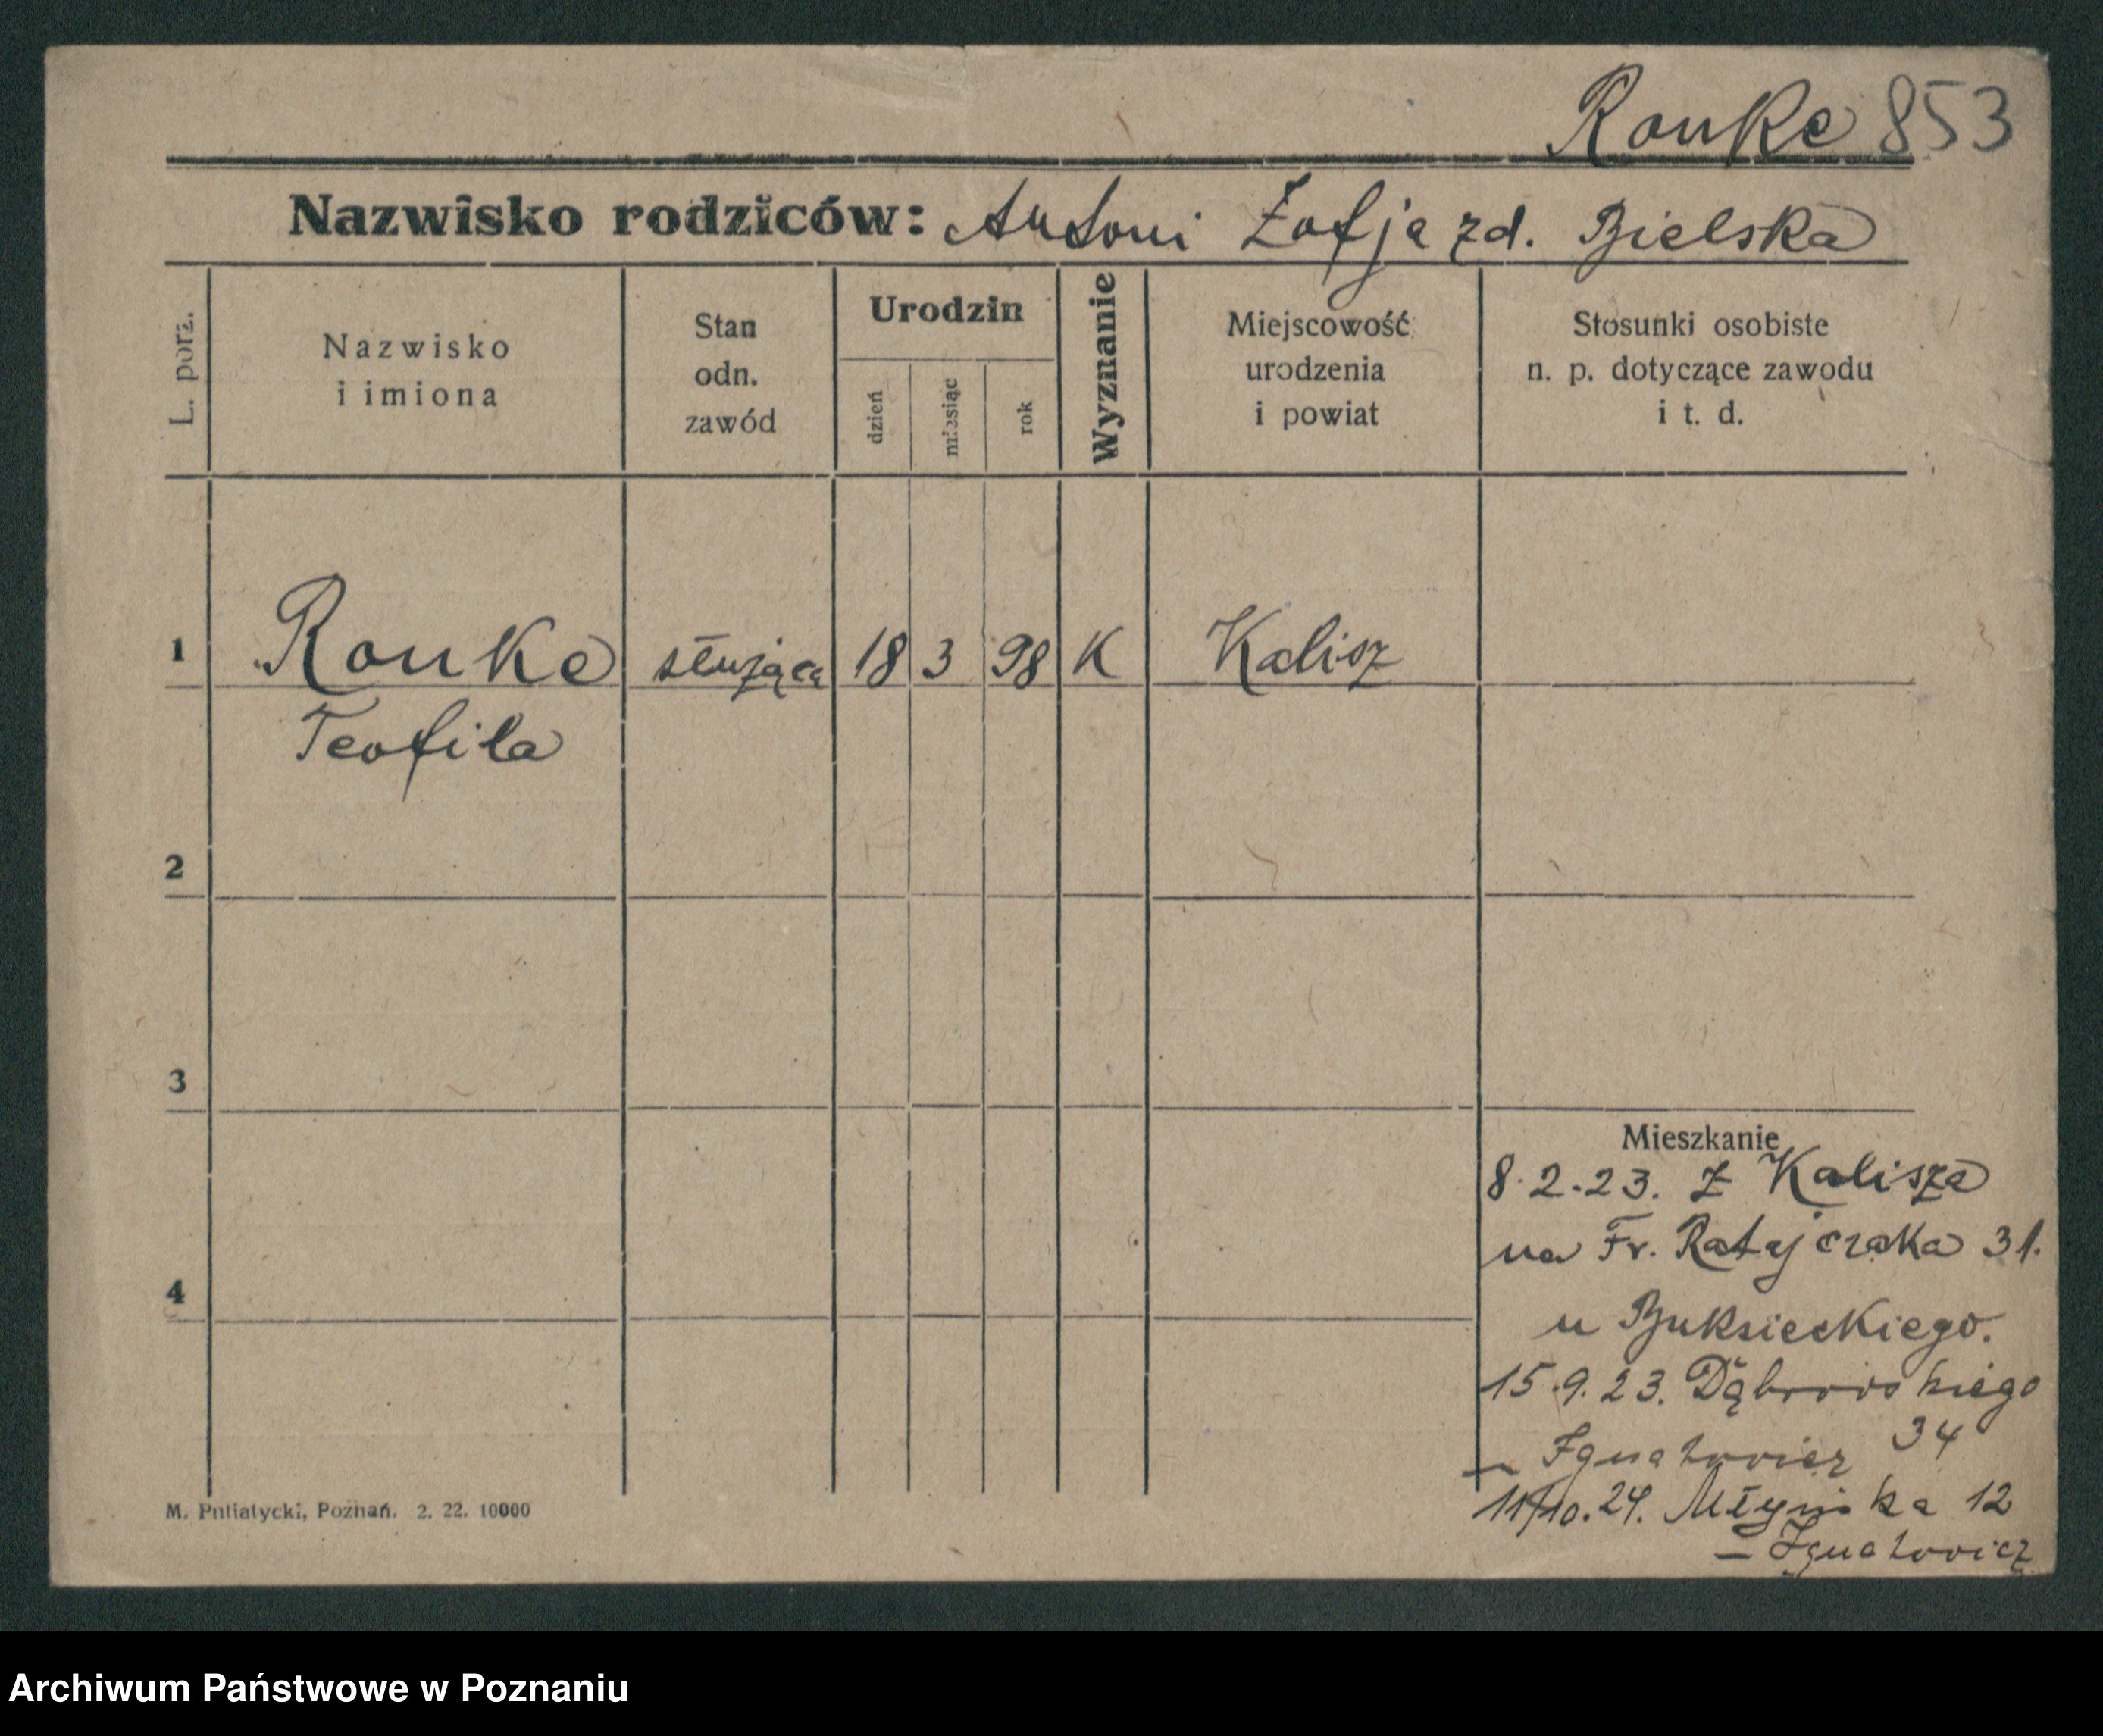 Ronke 853
Nazwisko rodziców: Antoni Zofja zd. Bielska
L. porz.
Nazwisko
i imiona
Stan
odn.
zawód
Urodzin
dzień
miesiąc
rok
Wyznanie
Miejscowość
urodzenia
i powiat
Stosunki osobiste
n. p. dotyczące zawodu
i t. d.
1 Ronke służąca 18 3 98 K Kalisz
Teofila
2
3
4
Mieszkanie
8.2.23. Z Kalisza
na Fr. Ratajczaka 31.
u Buksieckiego.
15.9.23. Dąbrowskiego
34
— Ignatowicz
11/10.24. Młyńska 12
— Ignatowicz
M. Putiatycki, Poznań. 2. 22. 10000
Archiwum Państwowe w Poznaniu